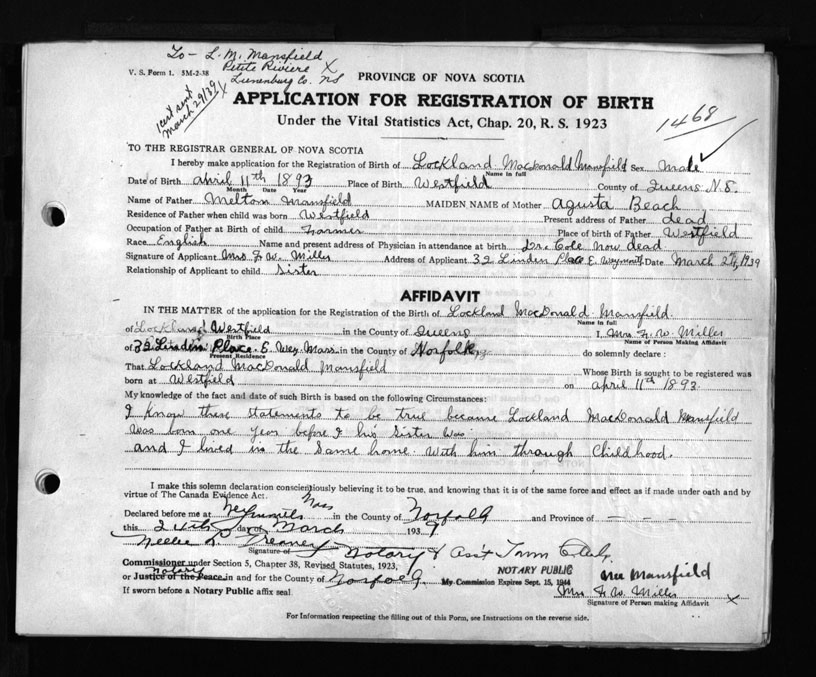 To - L. M. Mansfield
Petite Riviere X
Lunenburg Co. NS
V. S. Form 1. 5M-2-38
1 cert sent
March 29/39 X
PROVINCE OF NOVA SCOTIA
APPLICATION FOR REGISTRATION OF BIRTH
Under the Vital Statistics Act, Chap. 20, R. S. 1923
1468
TO THE REGISTRAR GENERAL OF NOVA SCOTIA
I hereby make application for the Registration of Birth of Lockland MacDonald Mansfield Sex Male
Name in full
Date of Birth April 11th 1893 Place of Birth Westfield County of Queens N.S.
Month Date Year
Name of Father Melton Mansfield MAIDEN NAME of Mother Agusta Beach
Residence of Father when child was born Westfield Present address of Father dead
Occupation of Father at Birth of child Farmer Place of birth of Father Westfield
Race English Name and present address of Physician in attendance at birth Dr. Cole Now dead
Signature of Applicant Mrs F. W. Miller Address of Applicant 32 Linden Place E. Weymouth Date March 24, 1939
Relationship of Applicant to child Sister
AFFIDAVIT
IN THE MATTER of the application for the Registration of the Birth of Lockland MacDonald Mansfield.
Name in full
of Westfield in the County of Queens I, Mrs. F. W. Miller
Birth Place Name of Person Making Affidavit
of 32 Linden Place E. Wey. Mass in the County of Norfolk do solemnly declare :
Present Residence
That Lockland MacDonald Mansfield Whose Birth is sought to be registered was
born at Westfield on April 11th 1893
My knowledge of the fact and date of such Birth is based on the following Circumstances:
I know these statements to be true because Lockland MacDonald Mansfield
was born one year before I his sister was
and I lived in the same home with him through childhood.
I make this solemn declaration conscientiously believing it to be true, and knowing that it is of the same force and effect as if made under oath and by
virtue of The Canada Evidence Act.
Mass
Declared before me at Weymouth in the County of Norfolk and Province of - - -
this 24th day of March 1939
Nellie L. Notary & Ass't Town Clerk
Signature of
Commissioner under Section 5, Chapter 38, Revised Statutes, 1923,
Notary
or Justice of the Peace in and for the County of Norfolk
NOTARY PUBLIC
My Commission Expires Sept. 15, 1944
nee Mansfield
If sworn before a Notary Public affix seal Mrs F. W. Miller X
Signature of Person making Affidavit
For Information respecting the filling out of this Form, see Instructions on the reverse side.